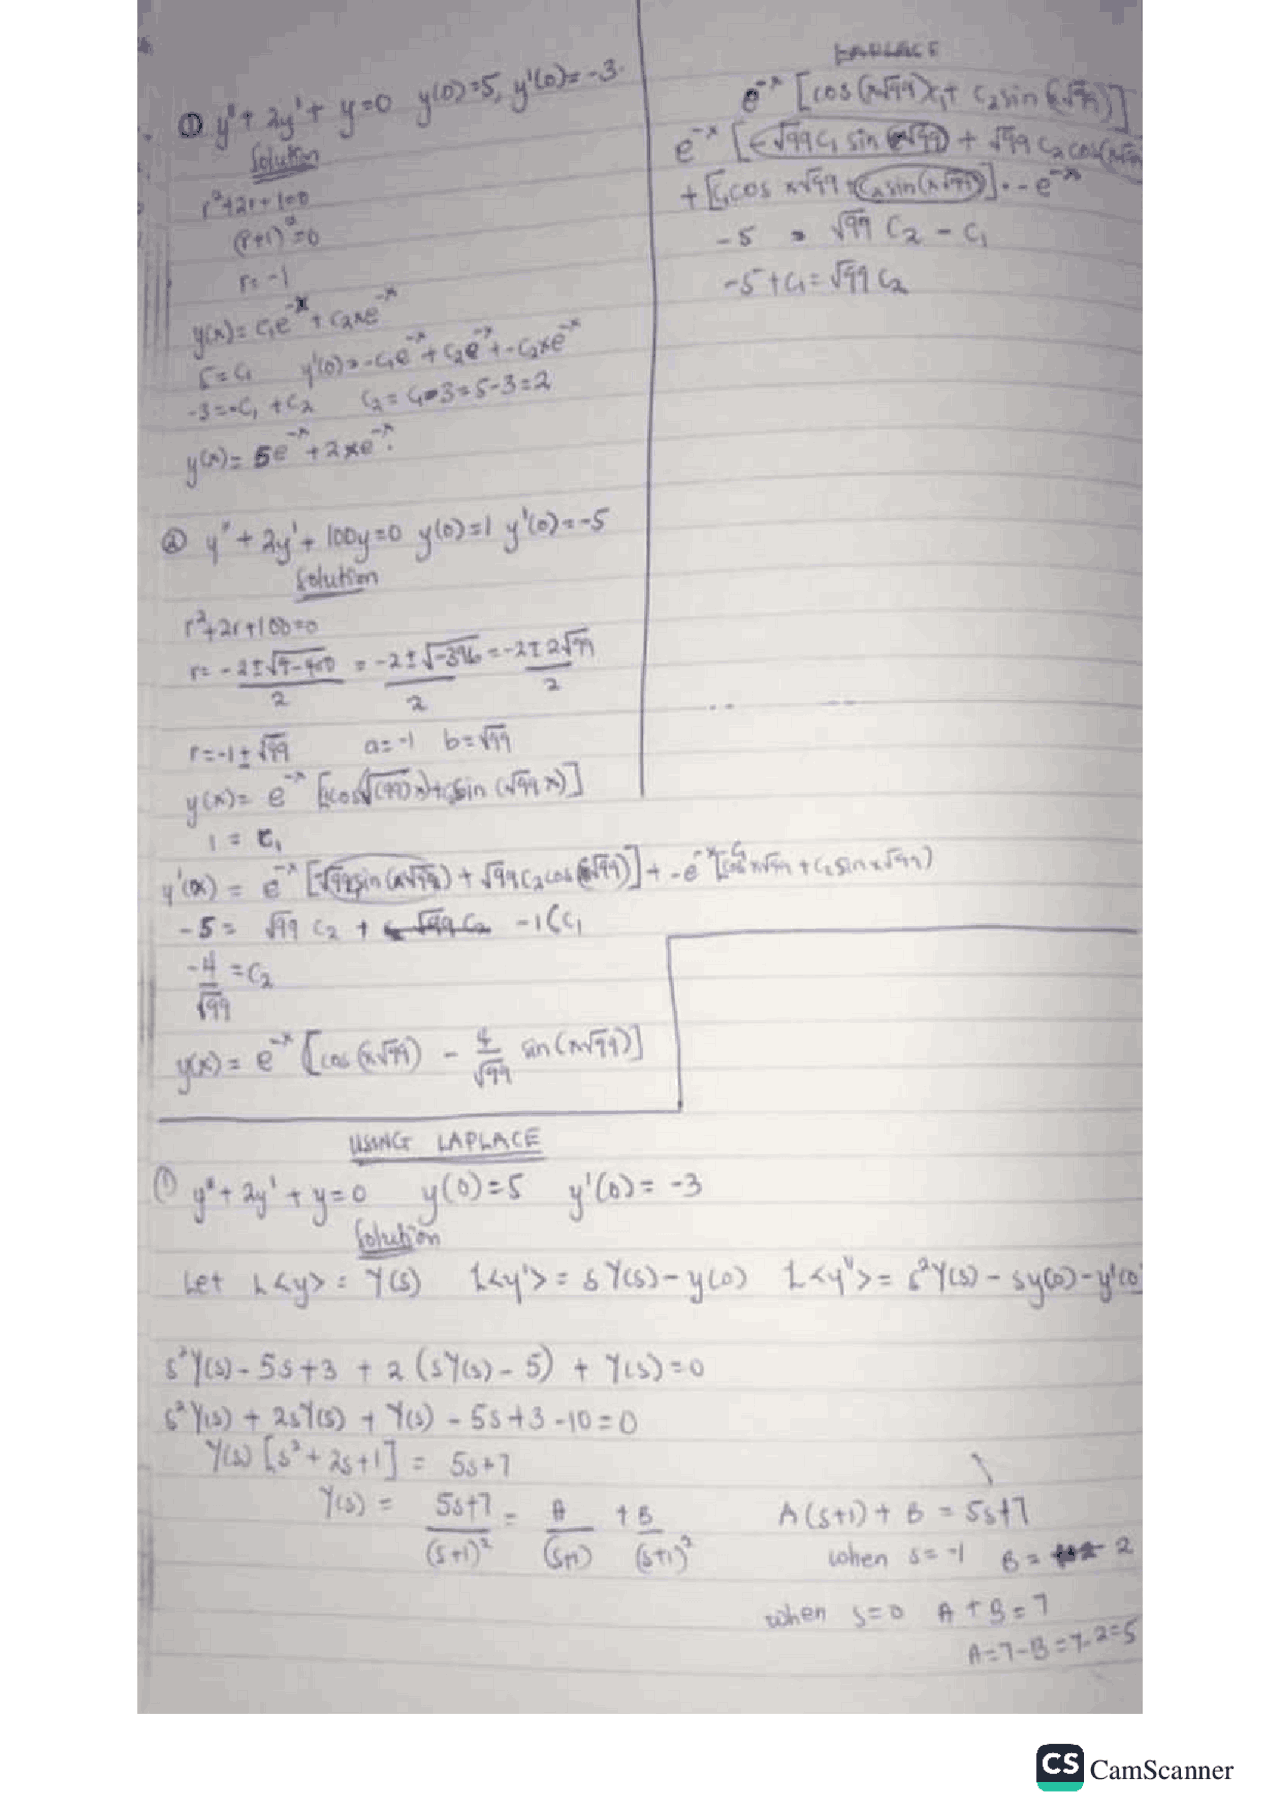 ① y″ + 2y' + y = 0 y(0)=5, y'(0)=-3.
Solution
r²+2r+1=0
(r+1)²=0
r=-1
y(x)= c₁e⁻ˣ + c₂xe⁻ˣ
5=c₁ y'(0)=-c₁e⁻ˣ + c₂e⁻ˣ + -c₂xe⁻ˣ
-3=-c₁ + c₂ c₂ = c₁-3=5-3=2
y(x)= 5e⁻ˣ + 2xe⁻ˣ.
② y″ + 2y' + 100y=0 y(0)=1 y'(0)=-5
Solution
r²+2r+100=0
r= -2±√4-400 / 2 = -2±√-396 / 2 = -2±2√99 / 2
r=-1±√99 a=-1 b=√99
y(x)= e⁻ˣ [c₁cos(√(99)x)+c₂sin(√99 x)]
1 = c₁
y'(x) = e⁻ˣ [-√99sin(x√99) + √99c₂cos(x√99)] + -e⁻ˣ[c₁cos x√99 + c₂sin x√99)
-5= √99 c₂ + -1(c₁
-4/√99 = c₂
y(x)= e⁻ˣ [cos(x√99) - 4/√99 sin(x√99)]
LAPLACE
e⁻ˣ [cos(x√99)c₁+ c₂sin(x√99)]
e⁻ˣ [-√99c₁ sin(x√99) + √99 c₂cos(x√99
+ [c₁cos x√99 + c₂sin(x√99)]. -e⁻ˣ
-5 = √99 c₂ - c₁
-5+c₁= √99 c₂
USING LAPLACE
① y″ + 2y' + y=0 y(0)=5 y'(0)= -3
Solution
Let L<y> = Y(s) L<y'> = sY(s)-y(0) L<y″>= s²Y(s) - sy(0)-y'(0)
s²Y(s)-5s+3 + 2(sY(s)-5) + Y(s)=0
s²Y(s) + 2sY(s) + Y(s) - 5s+3-10=0
Y(s)[s²+2s+1] = 5s+7
Y(s) = 5s+7/(s+1)² = A/(s+1) + B/(s+1)²
A(s+1)+B = 5s+7
when s=-1 B= 2
when s=0 A+B=7
A=7-B=7-2=5
CS CamScanner